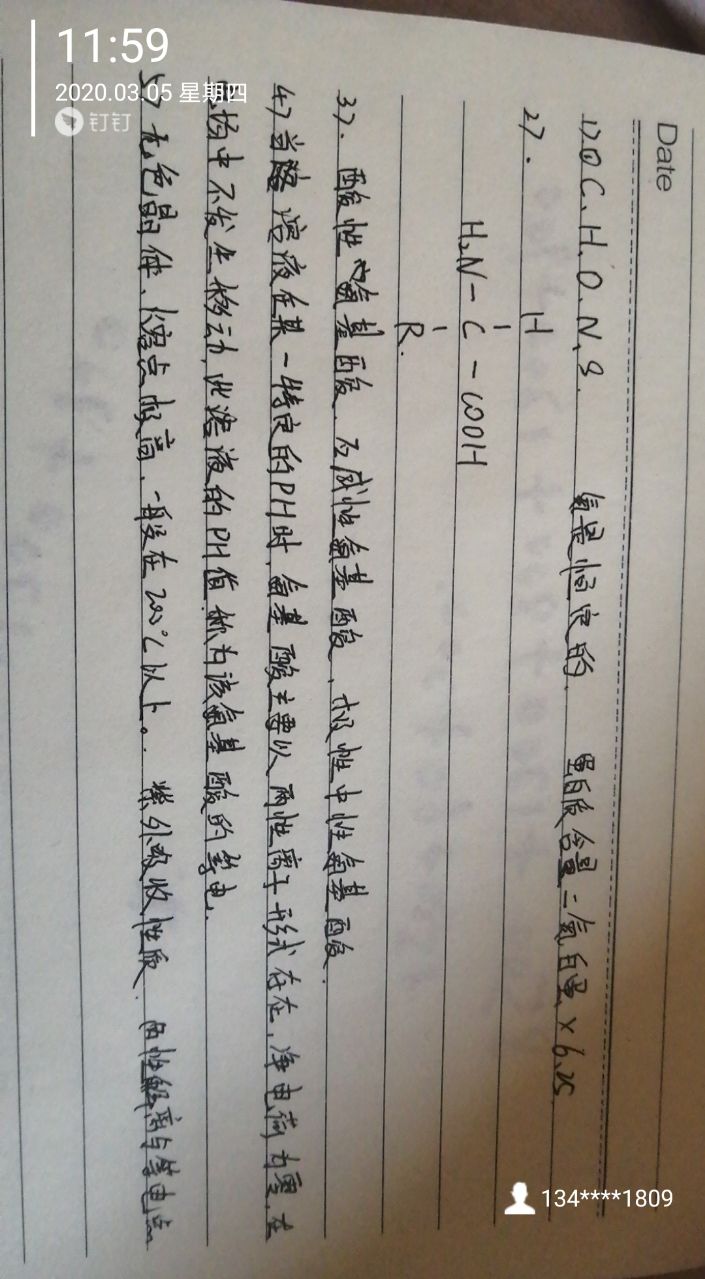 11:59
2020.03.05 星期四
钉钉
Date
1).① C、H、O、N、S. 氮是恒定的. 蛋白质含量=氮含量×6.25
2).
H
H₂N-C-COOH
R.
3). 酸性氨基酸 及碱性氨基酸、极性中性氨基酸.
4) 当溶液在某一特定的PH时,氨基酸主要以两性离子形式存在,净电荷为零,在
电场中不发生移动,此溶液的PH值称为该氨基酸的等电.
5) 无色晶体、熔点极高,一般在200℃以上。紫外吸收性质. 两性解离与等电点
134****1809